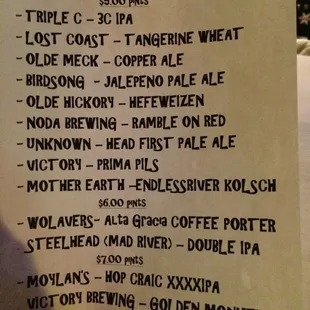 $5.00 pints
- TRIPLE C - 3C IPA
- LOST COAST - TANGERINE WHEAT
- OLDE MECK - COPPER ALE
- BIRDSONG - JALEPENO PALE ALE
- OLDE HICKORY - HEFEWEIZEN
- NODA BREWING - RAMBLE ON RED
- UNKNOWN - HEAD FIRST PALE ALE
- VICTORY - PRIMA PILS
- MOTHER EARTH -ENDLESSRIVER KOLSCH
$6.00 pints
- WOLAVERS- Alta Gracia COFFEE PORTER
STEELHEAD (MAD RIVER) - DOUBLE IPA
$7.00 pints
- MOYLAN'S - HOP CRAIC XXXXIPA
VICTORY BREWING - GOLDEN MONKEY